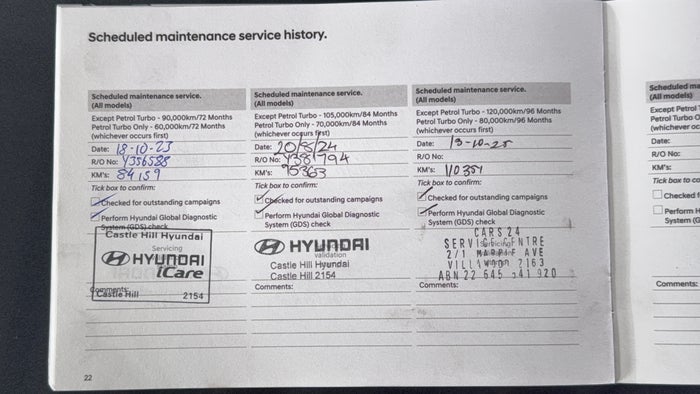 Scheduled maintenance service history.
Scheduled maintenance service.
(All models)
Except Petrol Turbo - 90,000km/72 Months
Petrol Turbo Only - 60,000km/72 Months
(whichever occurs first)
Date: 18-10-23
R/O No: Y356588
KM's: 84159
Tick box to confirm:
Checked for outstanding campaigns
Perform Hyundai Global Diagnostic
System (GDS) check
Castle Hill Hyundai
Servicing
HYUNDAI
iCare
Comments:
Castle Hill 2154
Scheduled maintenance service.
(All models)
Except Petrol Turbo - 105,000km/84 Months
Petrol Turbo Only - 70,000km/84 Months
(whichever occurs first)
Date: 20/8/24
R/O No: Y381794
KM's: 95363
Tick box to confirm:
Checked for outstanding campaigns
Perform Hyundai Global Diagnostic
System (GDS) check
HYUNDAI
validation
Castle Hill Hyundai
Castle Hill 2154
Comments:
Scheduled maintenance service.
(All models)
Except Petrol Turbo - 120,000km/96 Months
Petrol Turbo Only - 80,000km/96 Months
(whichever occurs first)
Date: 13-10-25
R/O No:
KM's: 110351
Tick box to confirm:
Checked for outstanding campaigns
Perform Hyundai Global Diagnostic
System (GDS) check
CARS 24
2/1 AVE
2163
ABN 22 645 920
Comments:
Scheduled ma
(All models)
Except Petrol T
Petrol Turbo O
(whichever oc
Date:
R/O No:
KM's:
Tick box to co
Checked f
Perform H
System (G
Comments:
22